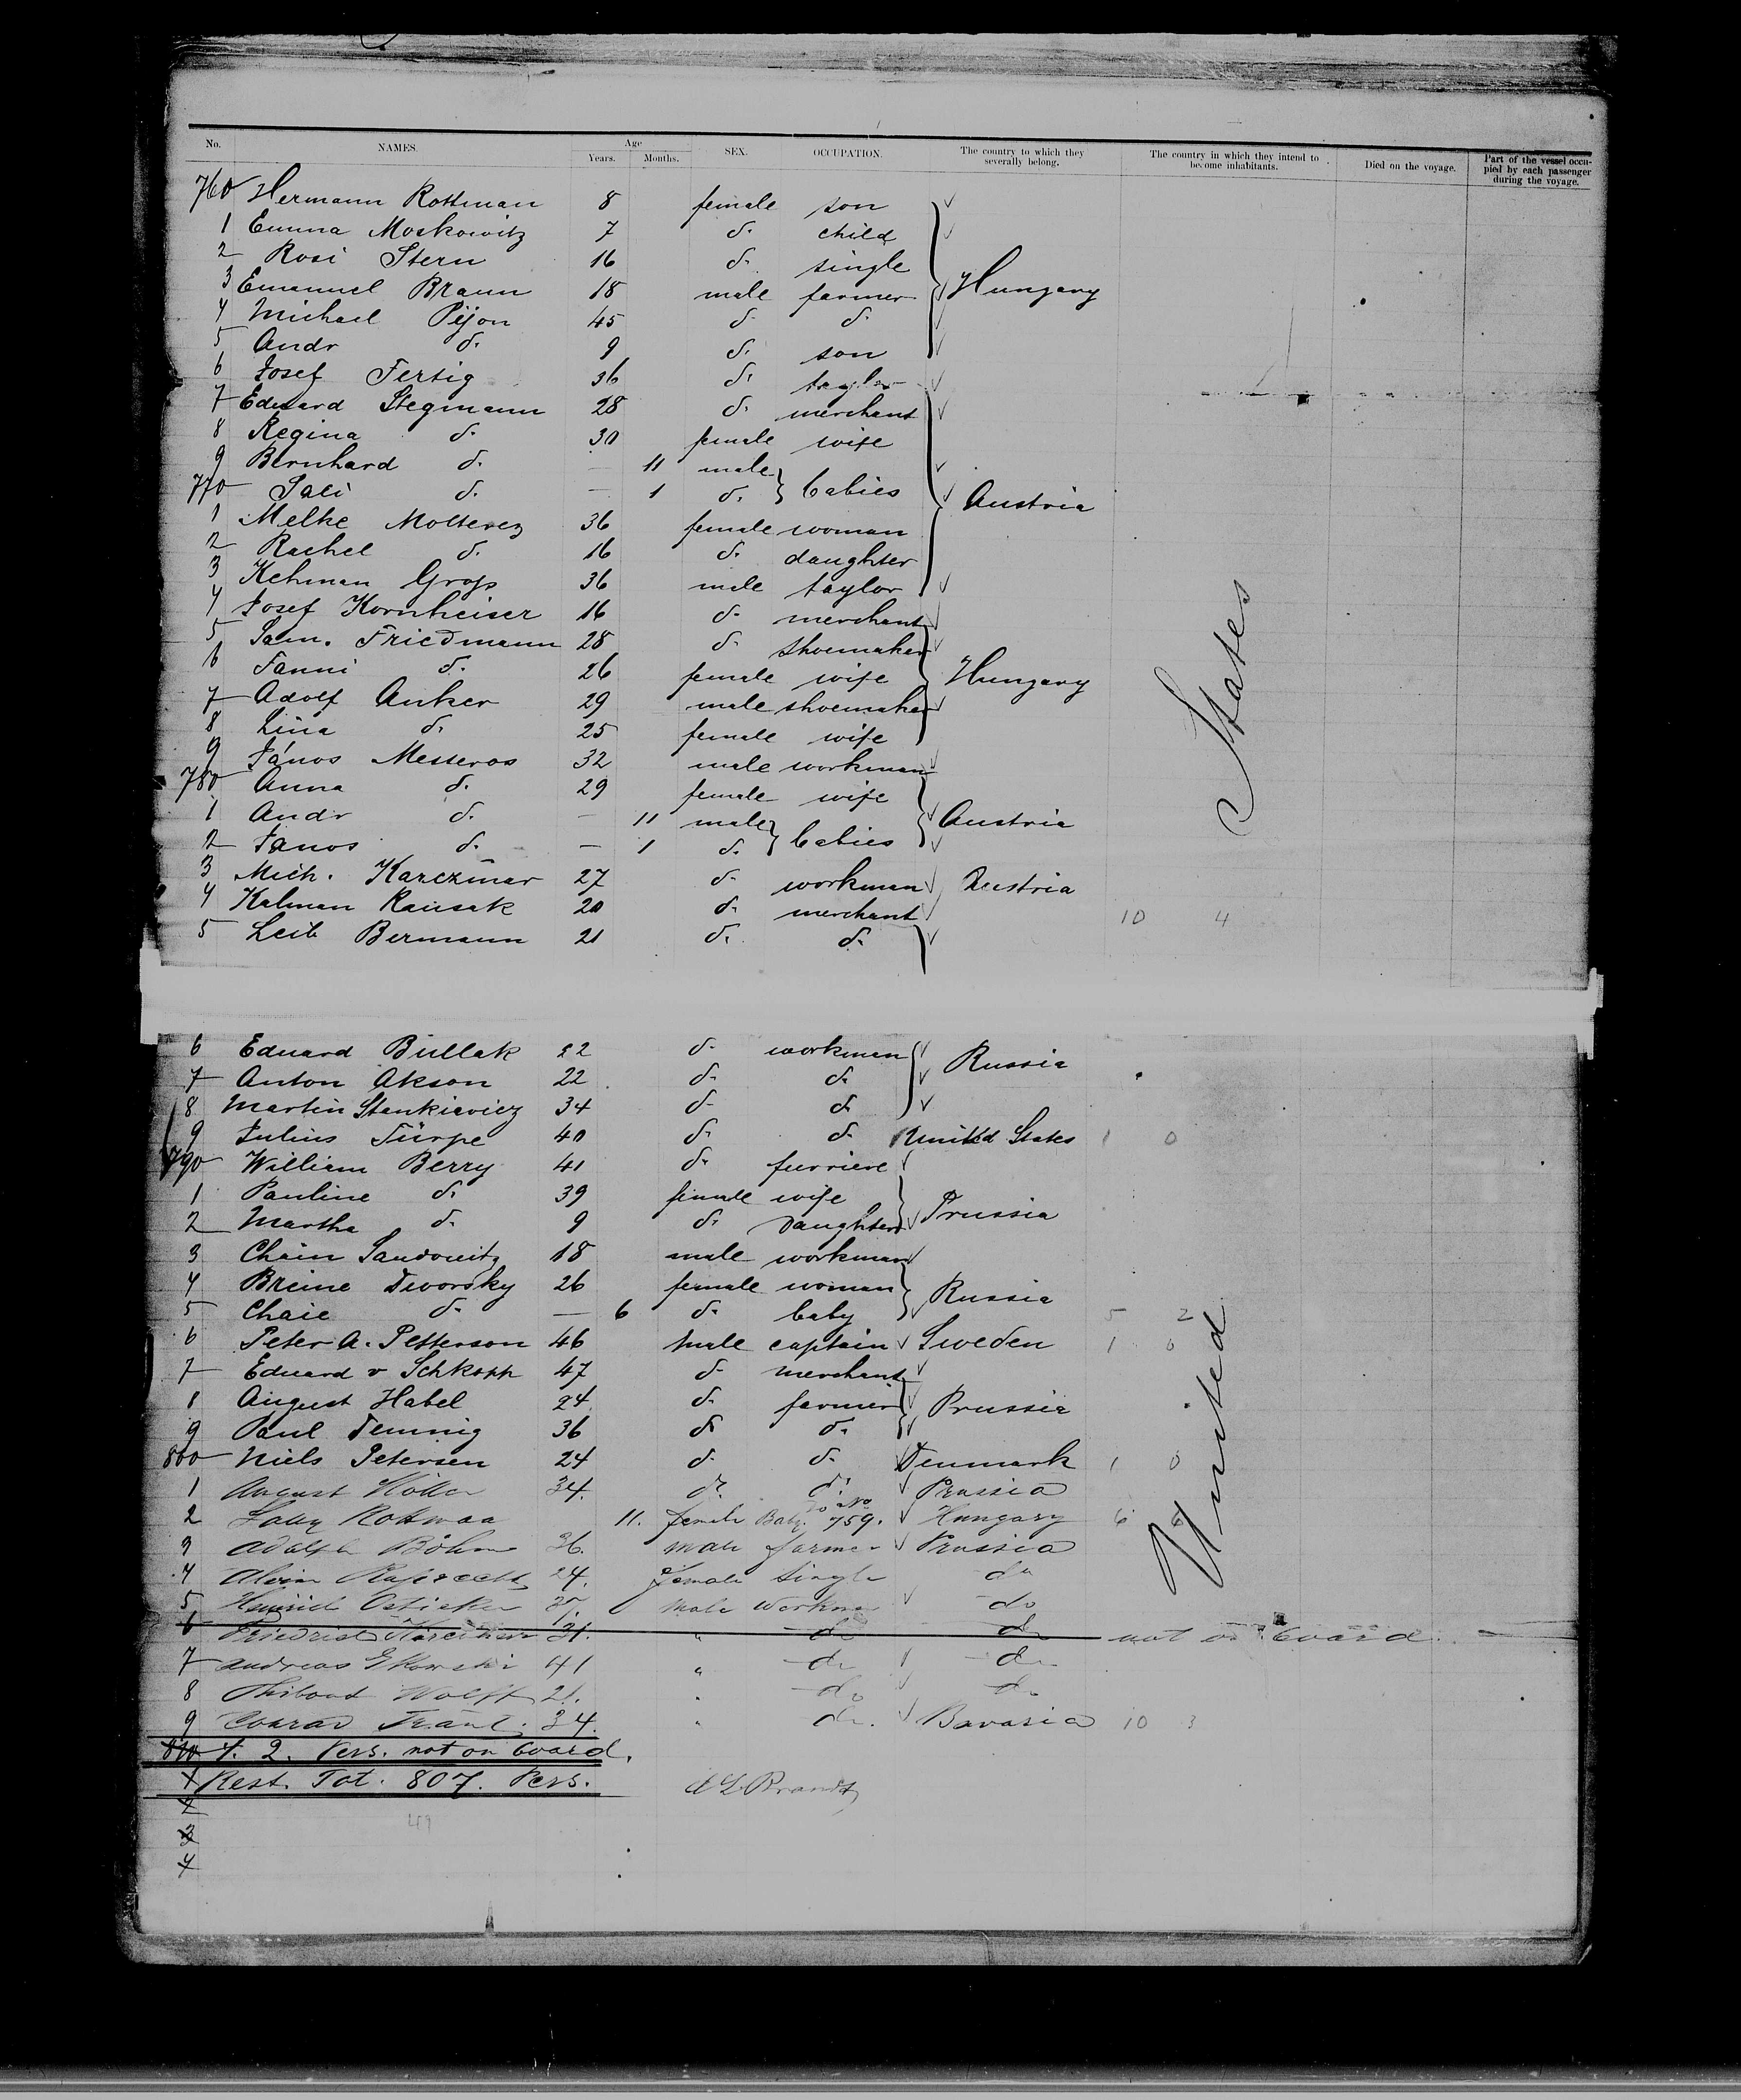 No. NAMES. Age Years. Months. SEX. OCCUPATION. The country to which they severally belong. The country in which they intend to become inhabitants. Died on the voyage. Part of the vessel occupied by each passenger during the voyage.
760 Hermann Rottman 8 female son
1 Emma Moskowitz 7 d. child
2 Rosi Stern 16 d. single
3 Emanuel Braun 18 male farmer Hungary
4 Michael Pijon 45 d. d.
5 Andr d. 9 d. son
6 Josef Fertig 36 d. taylor
7 Eduard Stegmann 28 d. merchant
8 Regina d. 30 female wife
9 Bernhard d. — 11 male
770 Sali d. — 1 d. babies Austria
1 Melke Molterez 36 female woman
2 Rachel d. 16 d. daughter
3 Kehman Gross 36 male taylor
4 Josef Kornheiser 16 d. merchant
5 Sam. Friedmann 28 d. shoemaker
6 Fanni d. 26 female wife Hungary
7 Adolf Anker 29 male shoemaker
8 Lina d. 25 female wife
9 János Messeros 32 male workman
780 Anna d. 29 female wife
1 Andr d. — 11 male Austria
2 Janos d. — 1 d. babies
3 Mich. Karczmar 27 d. workman Austria
4 Kalman Kausak 20 d. merchant 10 4
5 Leib Bermann 21 d. d.
6 Eduard Bullak 22 d. workman Russia
7 Anton Akson 22 d. d.
8 Martin Stankiavicz 34 d. d.
9 Julius Türpe 40 d. d. United States 1 0
790 William Berry 41 d. furriere
1 Pauline d. 39 female wife
2 Martha d. 9 d. Daughter Prussia
3 Chaim Sandowitz 18 male workman
4 Breine Dworsky 26 female woman Russia
5 Chaie d. — 6 d. baby 5 2
6 Peter A. Petterson 46 male captain Sweden 1 0
7 Eduard v Schkopp 47 d. merchant
8 August Habel 24 d. farmer Prussia
9 Paul Demnig 36 d. d.
800 Niels Petersen 24 d. d. Denmark 1 0
1 August 34. d. d. Prussia
2 Rottman 11. female Baby. to No 759. Hungary 6 6
3 Adolph Böhm 36. male farmer Prussia
4 24. female single do
5 Heinrich male workman do
6 Friedrich 31. " do do not on board.
7 Andreas 41 " do do
8 Wolff 21. " do do
9 Conrad 34. " do. Bavaria 10 3
810 ./. 2. Pers. not on board.
1 Rest. Tot. 807. Pers. Brandt
2
3
4
United States